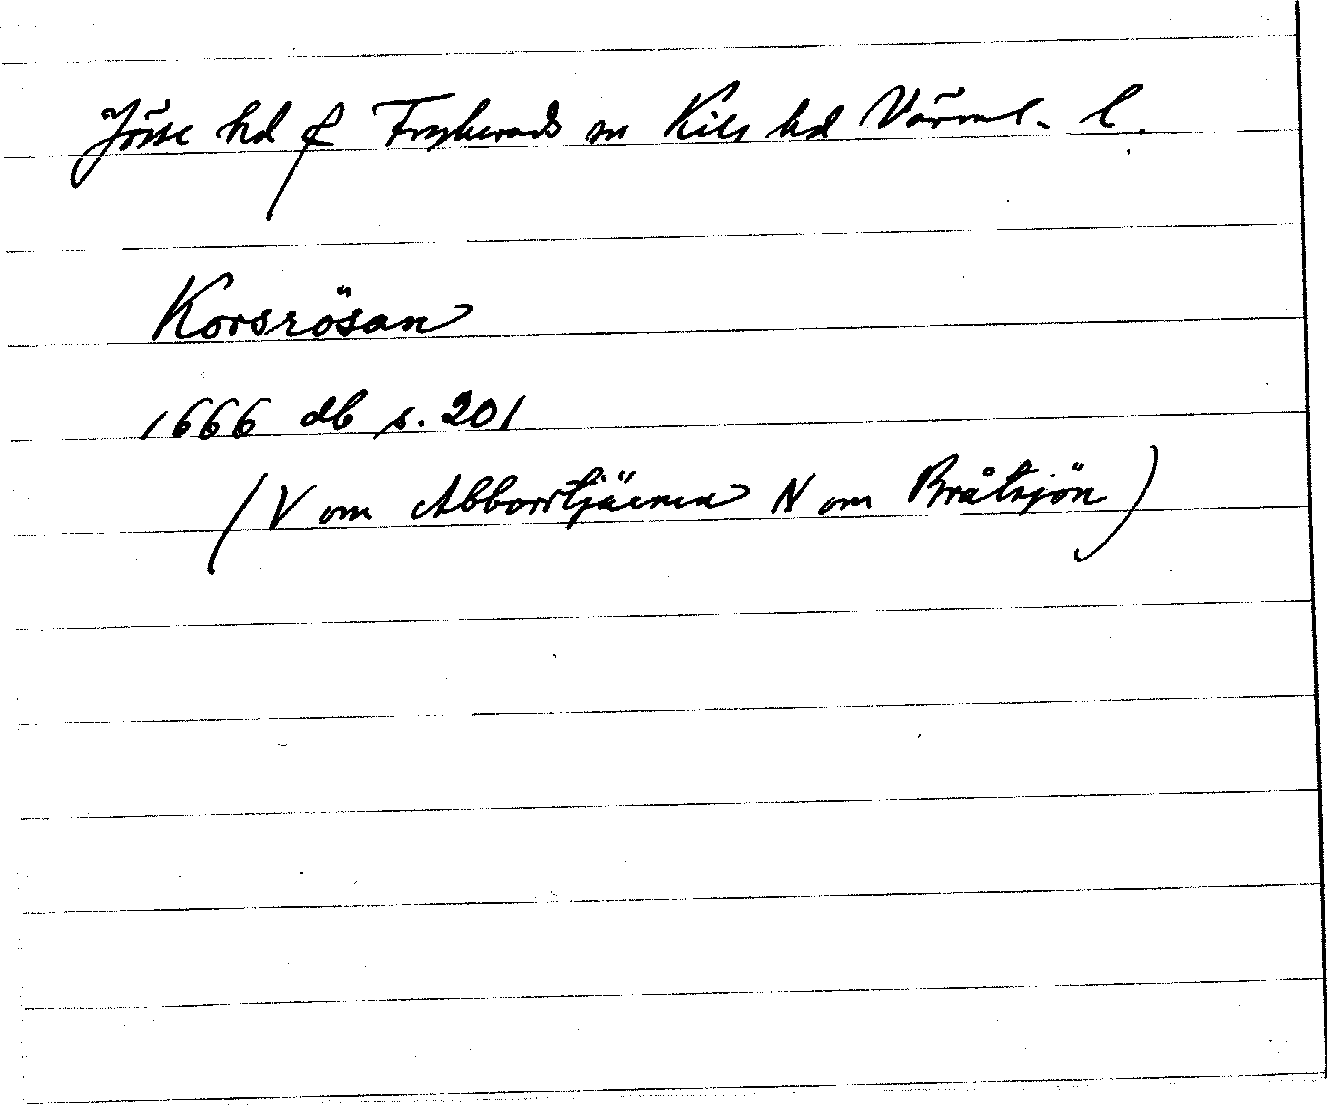 Jösse hd & Frykeruds sn Kils hd Värml. l.
Korsrösan
1666 db s. 201
(V om Abborrtjärnen N om Bråtsjön)